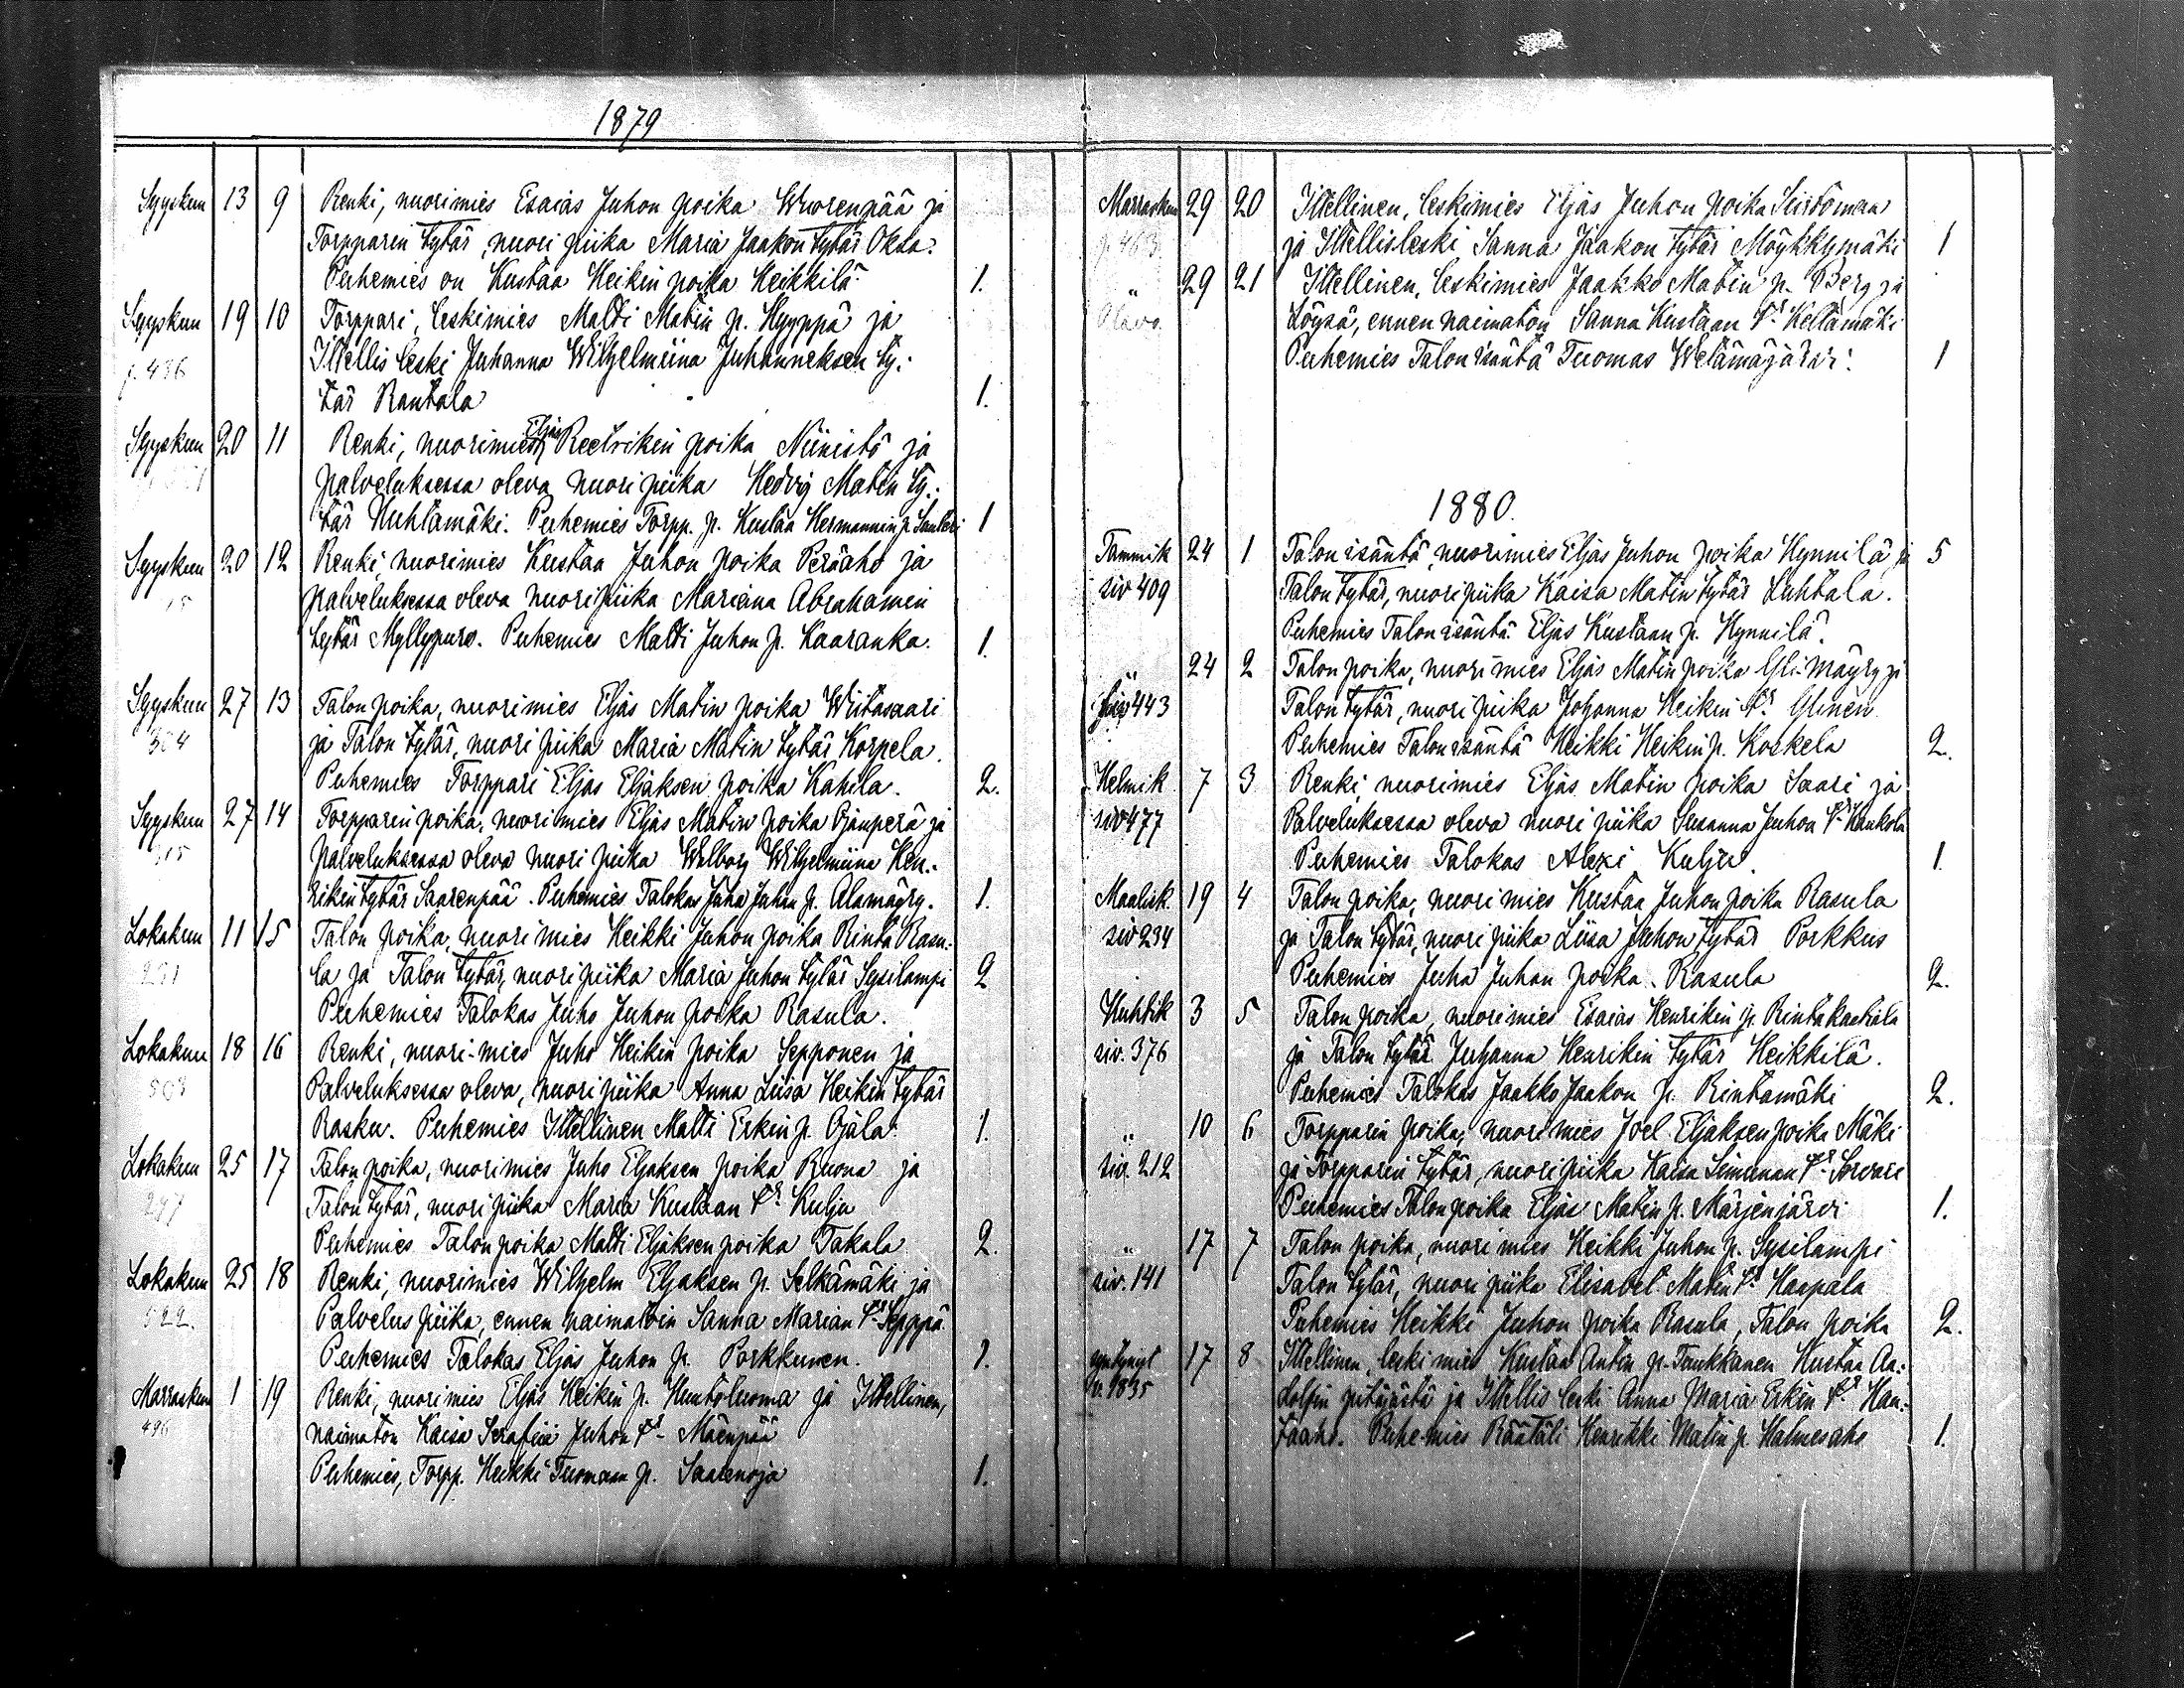 1879
Syyskuu 13 9 Renki, nuorimies Esaias Juhon poika Wuorenpää ja
Torpparin tytär, nuori piika Maria Jaakon tytär Oksa.
Puhemies on Kustaa Heikin poika Heikkilä. 1.
Syyskuu 19 10 Torppari, Leskimies Matti Matin p. Hyyppä ja
p. 436 Ittellis leski Juhanna Wilhelmiina Juhanneksen ty:
tär Rantala 1.
Syyskuu 20 11 Renki, nuorimies Eljas Reetrikin poika Niinistö ja
palveluksessa oleva nuori piika Hedvig Matin ty:
tär Huhtamäki. Puhemies Torpp. p. Kustaa Hermannin p. Santeri 1
Syyskuu 20 12 Renki, nuorimies Kustaa Juhon poika Peräaho ja
palveluksessa oleva nuori piika Mariana Abrahamin
tytär Myllypuro. Puhemies Matti Juhon p. Kaaranka. 1.
Syyskuu 27 13 Talon poika, nuorimies Eljas Matin poika Wiitasaari
304 ja Talon tytär, nuori piika Maria Matin tytär Korpela.
Puhemies Torppari Eljas Eljaksen poika Kahila. 2.
Syyskuu 27 14 Torpparin poika, nuorimies Eljas Matin poika Ojanperä ja
315 palveluksessa oleva nuori piika Walborg Wilhelmiina Hen:
rikin tytär Saarenpää. Puhemies Talokas Juha Juhan p. Alamäyry. 1.
Lokakuu 11 15 Talon poika, nuorimies Heikki Juhon poika Rinta Rasu:
251 la ja Talon tytär, nuori piika Maria Juhon tytär Sysilampi 2
Puhemies Talokas Juho Juhon poika Rasula.
Lokakuu 18 16 Renki, nuori-mies Juho Heikin poika Sepponen ja
508 Palveluksessa oleva, nuori piika Anna Liisa Heikin tytär
Rasku. Puhemies Ittellinen Matti Erkin p. Ojala. 1.
Lokakuu 25 17 Talon poika, nuorimies Juho Eljaksen poika Ruona ja
297 Talon tytär, nuori piika Maria Kustaan tr Kulju
Puhemies Talon poika Matti Eljaksen poika Takala 2.
Lokakuu 25 18 Renki, nuorimies Wilhelm Eljaksen p. Selkämäki ja
522. Palvelus piika, ennen naimatoin Sanna Marian tr Seppä
Puhemies Talokas Eljas Juhon p. Porkkunen. 1.
Marraskuu 1 19 Renki, nuorimies Eljas Heikin p. Huntoluoma ja Ittellinen,
496 naimaton Kaisa Serafiia Juhon tr Mäenpää
Puhemies, Torpp. Heikki Tuomaan p. Saarenoja 1.
Marraskuu 29 20 Ittellinen, leskimies Eljas Juhon poika Siirtomaa
p. 463 ja Ittellis leski Sanna Jaakon tytär Möykkymäki 1
" 29 21 Ittellinen, leskimies Jaakko Matin p. Berg ja
Alavo. Löysä, ennen naimaton Sanna Kustaan tr Keltamäki
Puhemies Talon isäntä Tuomas Wetämäjärvi. 1
1880.
Tammik 24 1 Talon isäntä, nuorimies Eljas Juhon poika Hynnilä ja 5
siv 409 Talon tytär, nuori piika Kaisa Matin tytär Luhtala.
Puhemies Talon isäntä Eljas Kustaan p. Hynnilä.
" 24 2 Talon poika, nuori mies Eljas Matin poika Yli-Mäyry ja
siv 443 Talon tytär, nuori piika Johanna Heikin tr Ylinen
Puhemies Talon isäntä Heikki Heikin p. Koskela 2.
Helmik 7 3 Renki nuorimies Eljas Matin poika Saari ja
siv 477 Palveluksessa oleva nuori piika Susanna Juhon tr Kaukola
Puhemies Talokas Alexi Kulju. 1.
Maalisk. 19 4 Talon poika, nuorimies Kustaa Juhon poika Rasula
siv 234 ja Talon tytär, nuori piika Liisa Juhon tytär Porkkus
Puhemies Juha Juhan poika Rasula 2.
Huhtik 3 5 Talon poika, nuorimies Esaias Henrikin p. Rintakaakala
siv. 376 ja Talon tytär Juhanna Henrikin tytär Heikkilä.
Puhemies Talokas Jaakko Jaakon p. Rintamäki 2.
" 10 6 Torpparin poika, nuorimies Joel Eljaksen poika Mäki
siv. 212 ja Torpparin tytär, nuori piika Kaisa Simunan tr Sorvari
Puhemies Talon poika Eljas Matin p. Märjenjärvi 1.
" 17 7 Talon poika, nuori mies Heikki Juhon p. Sysilampi
siv. 141 Talon tytär, nuori piika Elisabet Matin tr Haapala
Puhemies Heikki Juhon poika Rasula, Talon poika 2.
syntynyt 17 8 Ittellinen, leski mies Kustaa Antin p. Tankkanen Kustaa Aa:
v. 1835 dolfin pitäjästä ja Ittellis leski Anna Maria Erkin tr Han:
kaaho. Puhemies Räätäli Henrikki Matin p. Halmesaho 1.